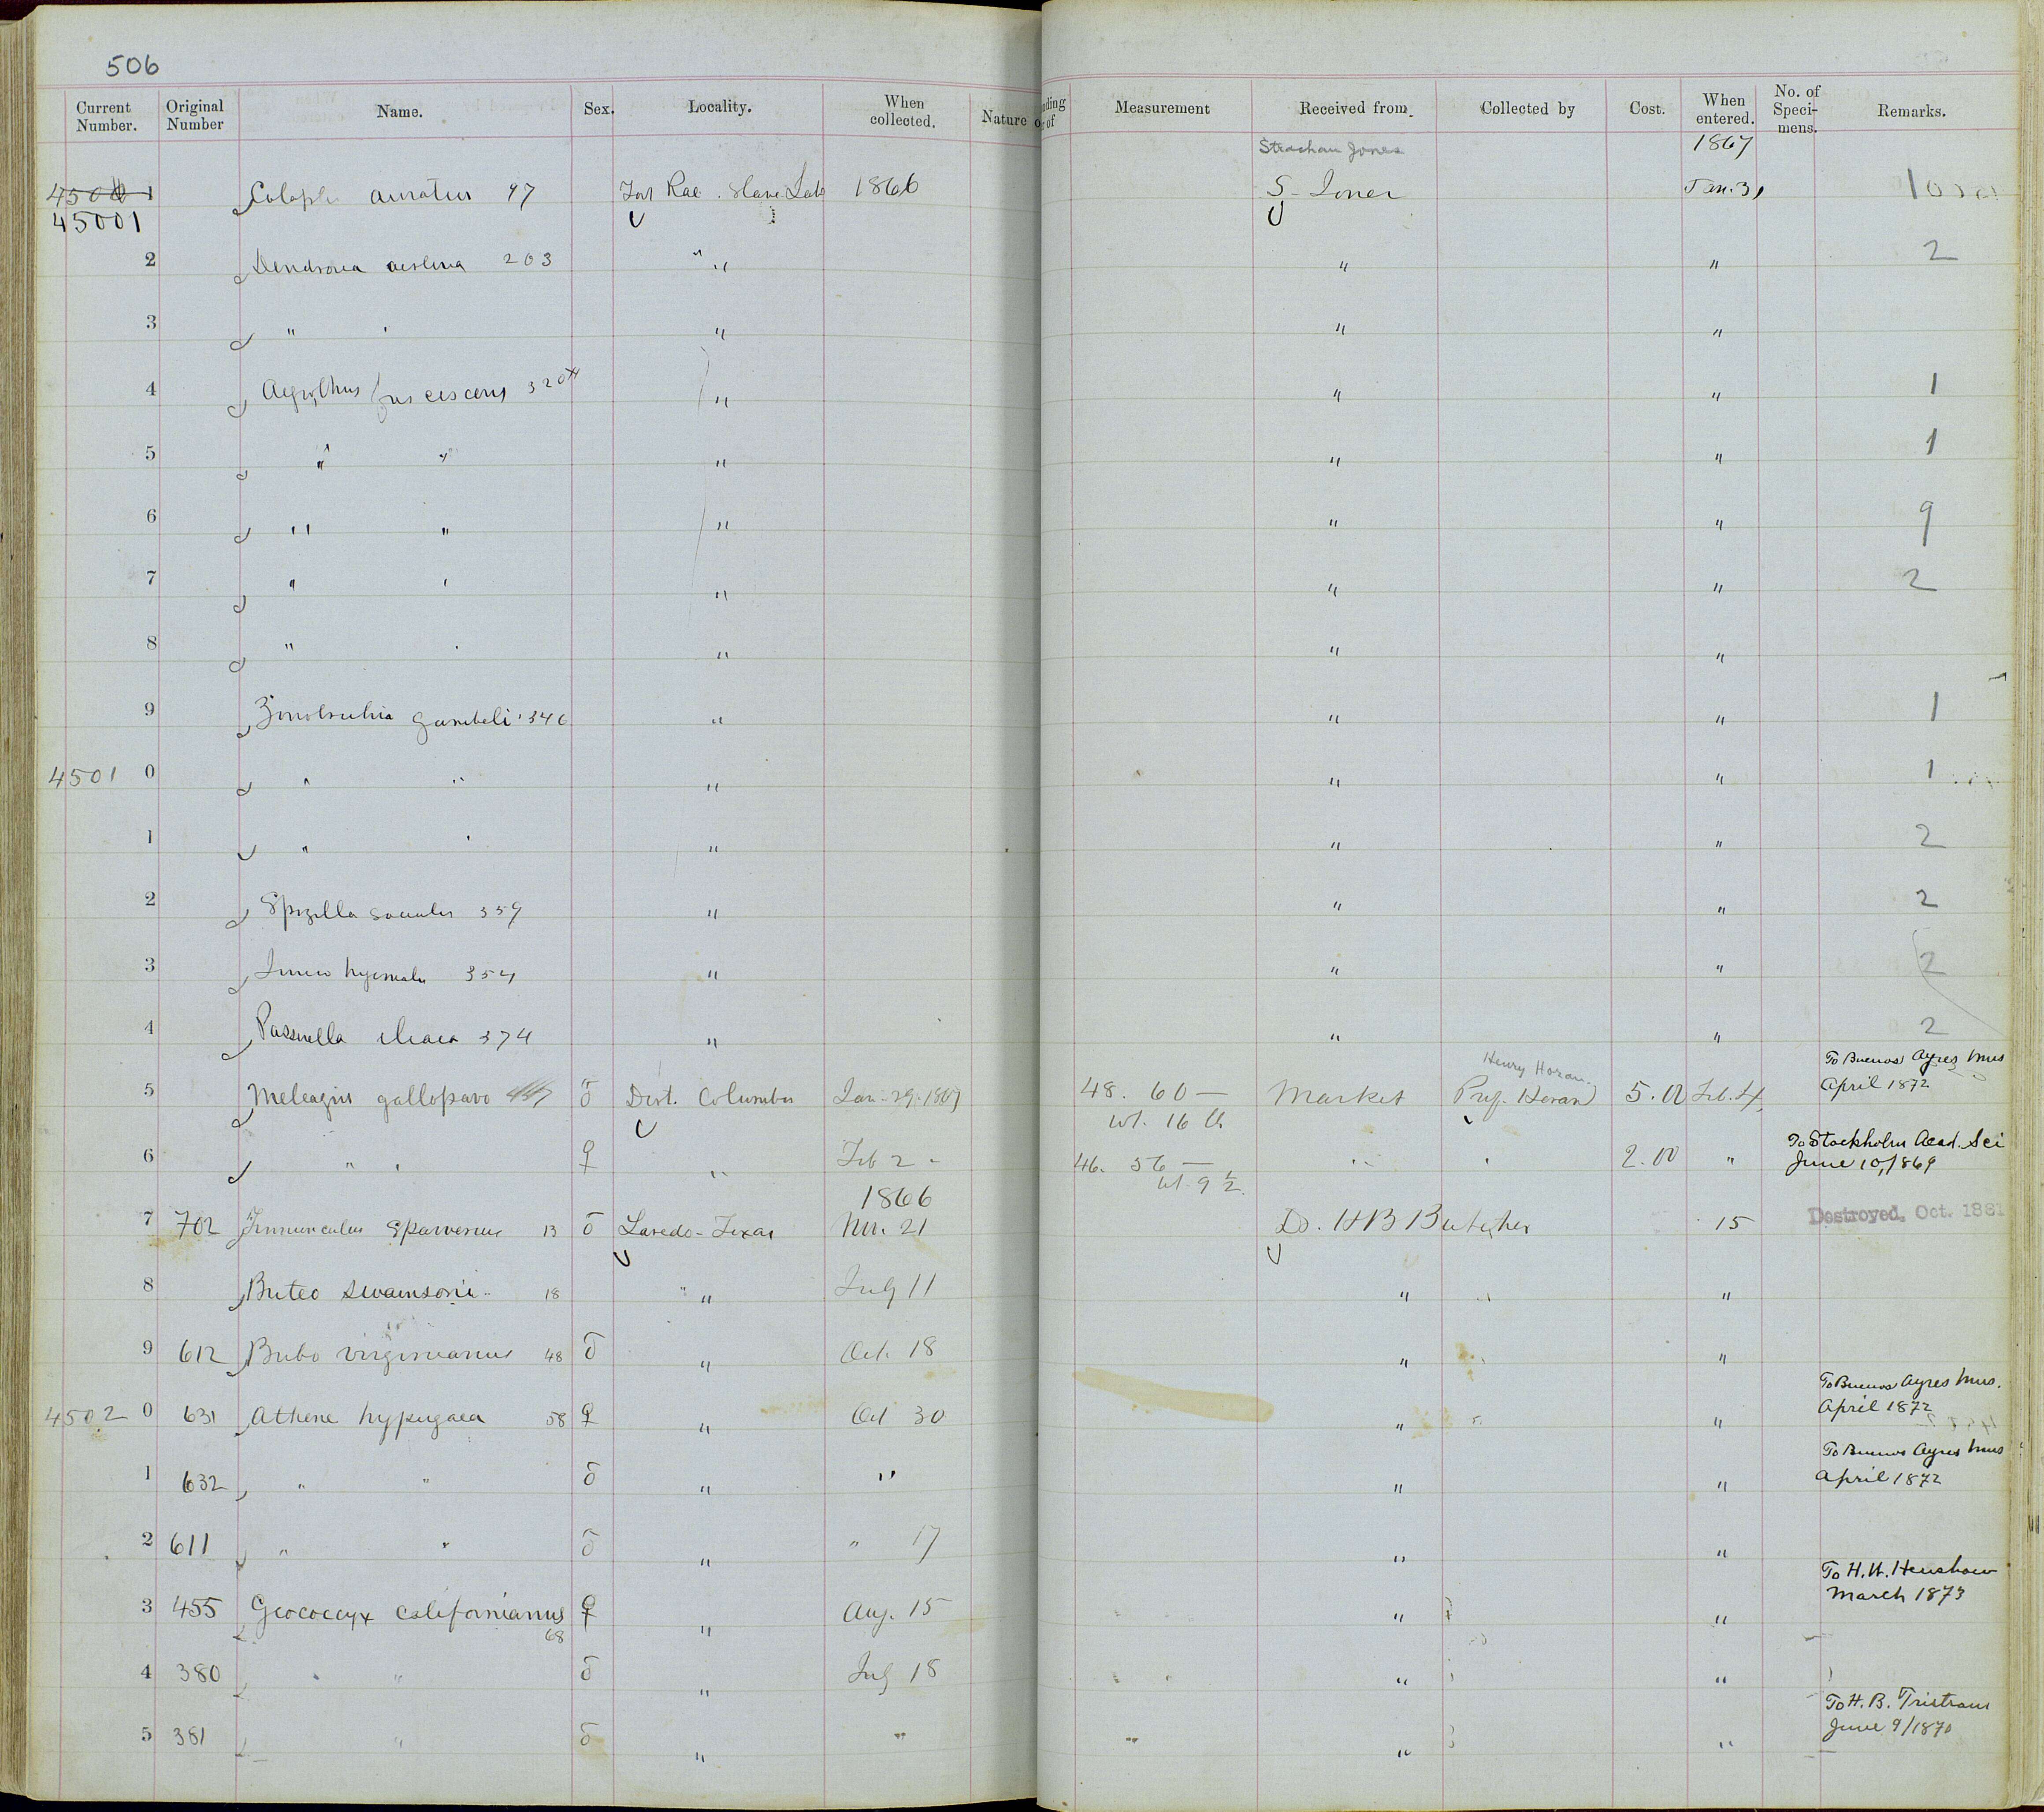 506
Current Number. Original Number Name. Sex. Locality. When collected. Nature
ding of Measurement Received from. Collected by Cost. When entered. No. of Speci-mens. Remarks.
Strachan Jones 1867
4500 1 auratus 97 Fort Rae. Slave Lake 1866 S. Jones Jan. 31 1
45001
2 Dendroica aestiva 203 " " " " 2
3 " ' " " "
4 Aegiothus fuscescens 320 " " " 1
5 " " " " " 1
6 " " " " " 9
7 " ' " " " 2
8 " ' " " "
9 Zonotrichia gambeli 346 " " " 1
4501 0 " " " " " 1
1 " ' " " " 2
2 Spizella socialis 359 " " " 2
3 Junco hyemalis 354 " " " 2
4 Passerella iliaca 374 " " " 2
Henry Horan. To Buenos Ayres Mus
5 Meleagris gallopavo ♂ Dist. Columbia Jan. 29. 1867 48. 60 — Market Prof. Horan 5.00 Feb. 4, April 1872
wt. 16 lb
To Stockholm Acad. Sci
6 " ' ♀ " Feb 2 - 46. 56 — " ' 2.00 " June 10, 1869
wt. 9 ½
1866
7 702 sparverius 13 ♂ Laredo - Texas Nov. 21 Dr. H B Butcher 15 Destroyed, Oct. 1881
8 Buteo swainsoni 18 " July 11 " "
9 612 Bubo virginianus 48 ♂ " Oct. 18 " "
To Buenos Ayres Mus.
4502 0 631 Athene hypugaea 58 ♀ " Oct 30 " " April 1872
To Buenos Ayres Mus
1 632 " " ♂ " " " " April 1872
2 611 " " ♂ " " 17 " "
To H. W. Henshaw
3 455 Geococcyx californianus ♀ " Aug. 15 " " March 1873
68
4 380 " " ♂ " July 18 " "
To H. B. Tristram
5 381 " " ♂ " " " " " June 9/1870